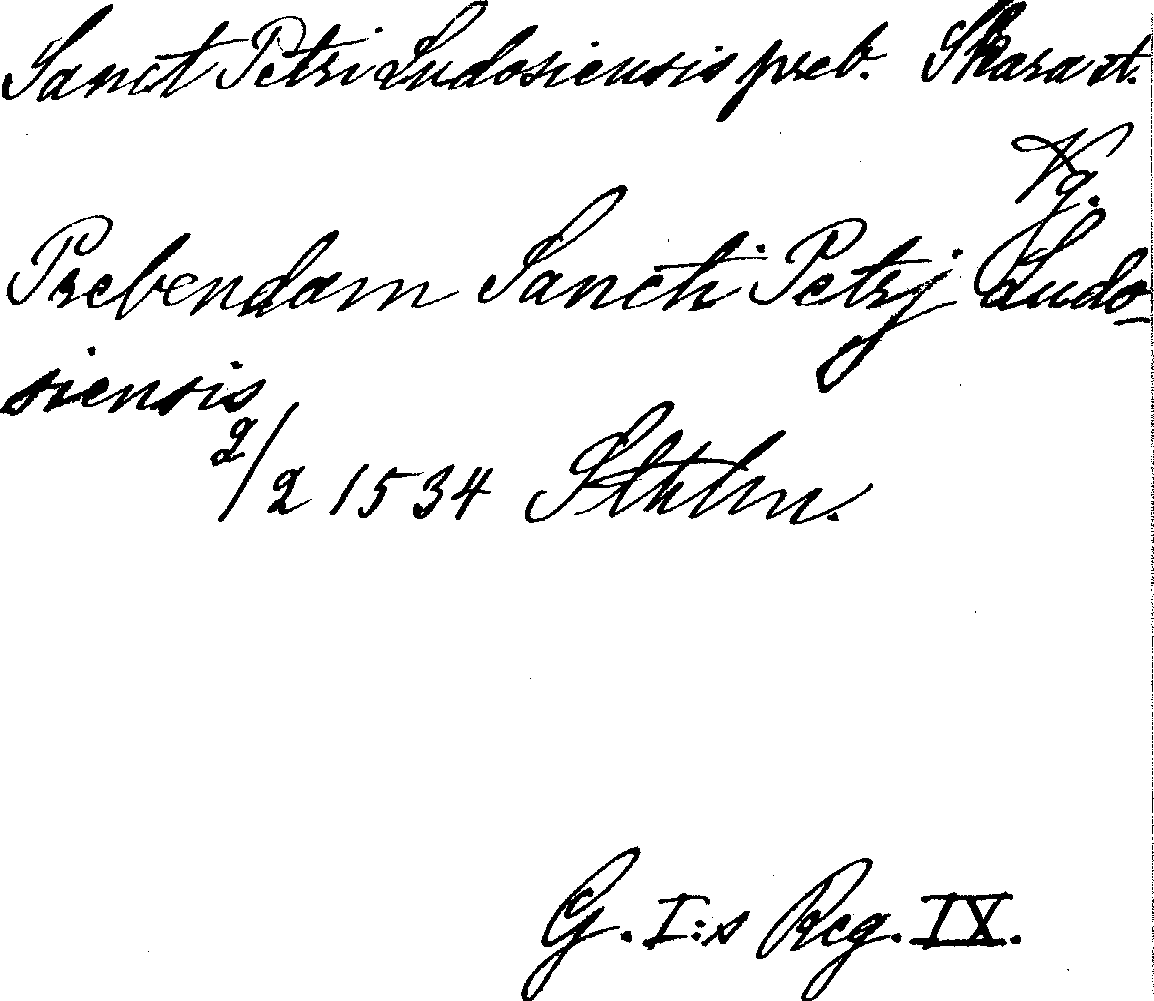 Sanct Petri Ludosiensis preb. Skara st.
Vg.
Prebendam Sancti Petrj Ludo-
siensis
2/2 1534 Sthlm.
G. I:s Reg. IX.